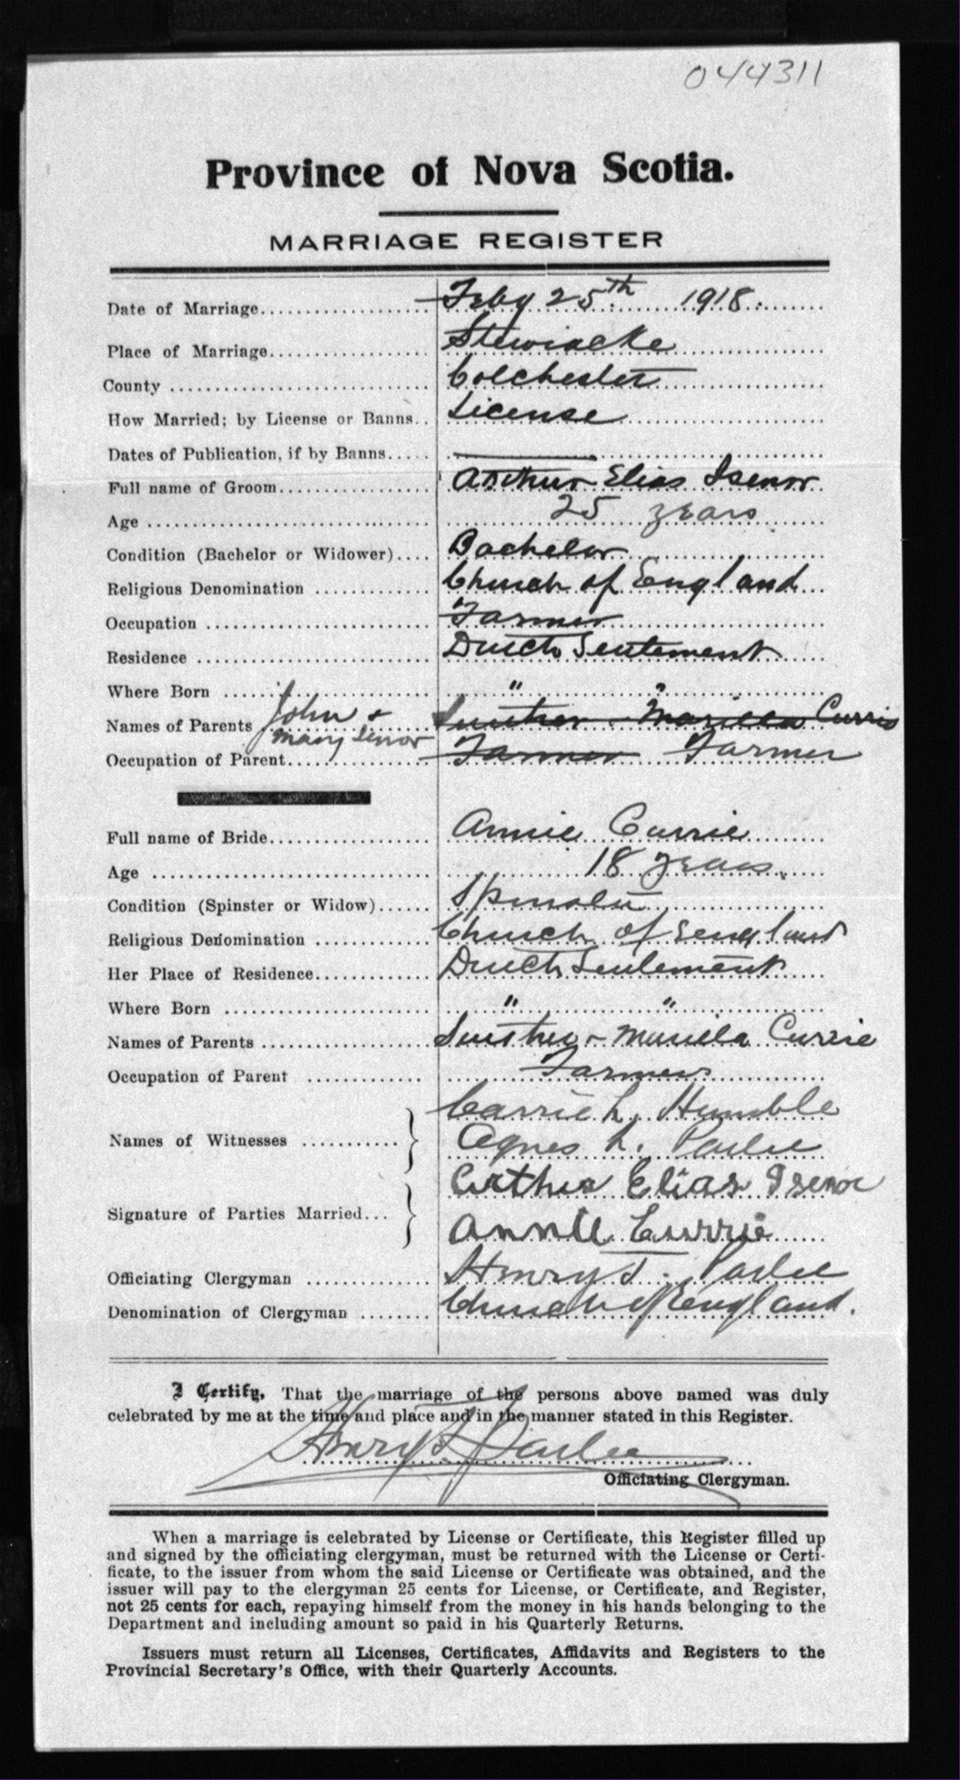 044311
Province of Nova Scotia.
MARRIAGE REGISTER
Date of Marriage Feby 25th 1918.
Place of Marriage Stewiacke
County Colchester
How Married; by License or Banns License
Dates of Publication, if by Banns
Full name of Groom Arthur Elias Isenor
Age 25 years
Condition (Bachelor or Widower) Bachelor
Religious Denomination Church of England
Occupation Farmer
Residence Dutch Settlement
Where Born " "
Names of Parents John + Mary Isenor Luther Marilla Currie
Occupation of Parent Farmer Farmer
Full name of Bride Annie Currie
Age 18 years
Condition (Spinster or Widow) Spinster
Religious Denomination Church of England
Her Place of Residence Dutch Settlement
Where Born " "
Names of Parents Luther + Marilla Currie
Occupation of Parent Farmer
Names of Witnesses Carrie L. Humble
Agnes L. Parlee
Signature of Parties Married Arthur Elias Isenor
Annie Currie
Officiating Clergyman Henry T. Parlee
Denomination of Clergyman Church of England.
I Certify, That the marriage of the persons above named was duly
celebrated by me at the time and place and in the manner stated in this Register.
Henry T. Parlee
Officiating Clergyman.
When a marriage is celebrated by License or Certificate, this Register filled up
and signed by the officiating clergyman, must be returned with the License or Certi-
ficate, to the issuer from whom the said License or Certificate was obtained, and the
issuer will pay to the clergyman 25 cents for License, or Certificate, and Register,
not 25 cents for each, repaying himself from the money in his hands belonging to the
Department and including amount so paid in his Quarterly Returns.
Issuers must return all Licenses, Certificates, Affidavits and Registers to the
Provincial Secretary's Office, with their Quarterly Accounts.